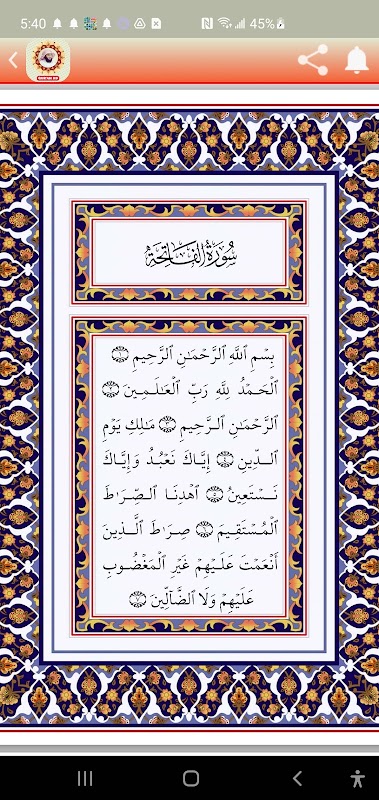 5:40
45%
سُورَةُ ٱلْفَاتِحَةِ
بِسْمِ ٱللَّهِ ٱلرَّحْمَـٰنِ ٱلرَّحِيمِ ١
ٱلْحَمْدُ لِلَّهِ رَبِّ ٱلْعَـٰلَمِينَ ٢
ٱلرَّحْمَـٰنِ ٱلرَّحِيمِ ٣ مَـٰلِكِ يَوْمِ
ٱلدِّينِ ٤ إِيَّاكَ نَعْبُدُ وَإِيَّاكَ
نَسْتَعِينُ ٥ ٱهْدِنَا ٱلصِّرَٰطَ
ٱلْمُسْتَقِيمَ ٦ صِرَٰطَ ٱلَّذِينَ
أَنْعَمْتَ عَلَيْهِمْ غَيْرِ ٱلْمَغْضُوبِ
عَلَيْهِمْ وَلَا ٱلضَّآلِّينَ ٧